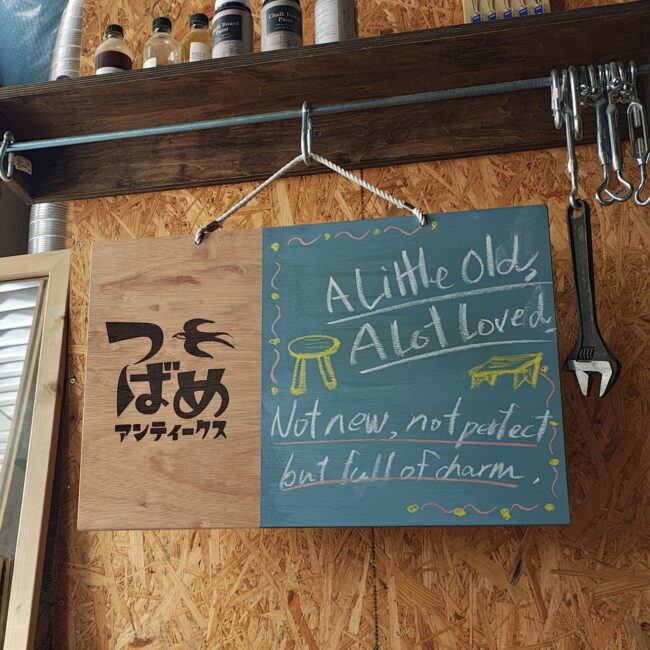 Chalk Board Paint
つばめ
アンティークス
A Little Old,
A Lot Loved
Not new, not perfect
but full of charm.